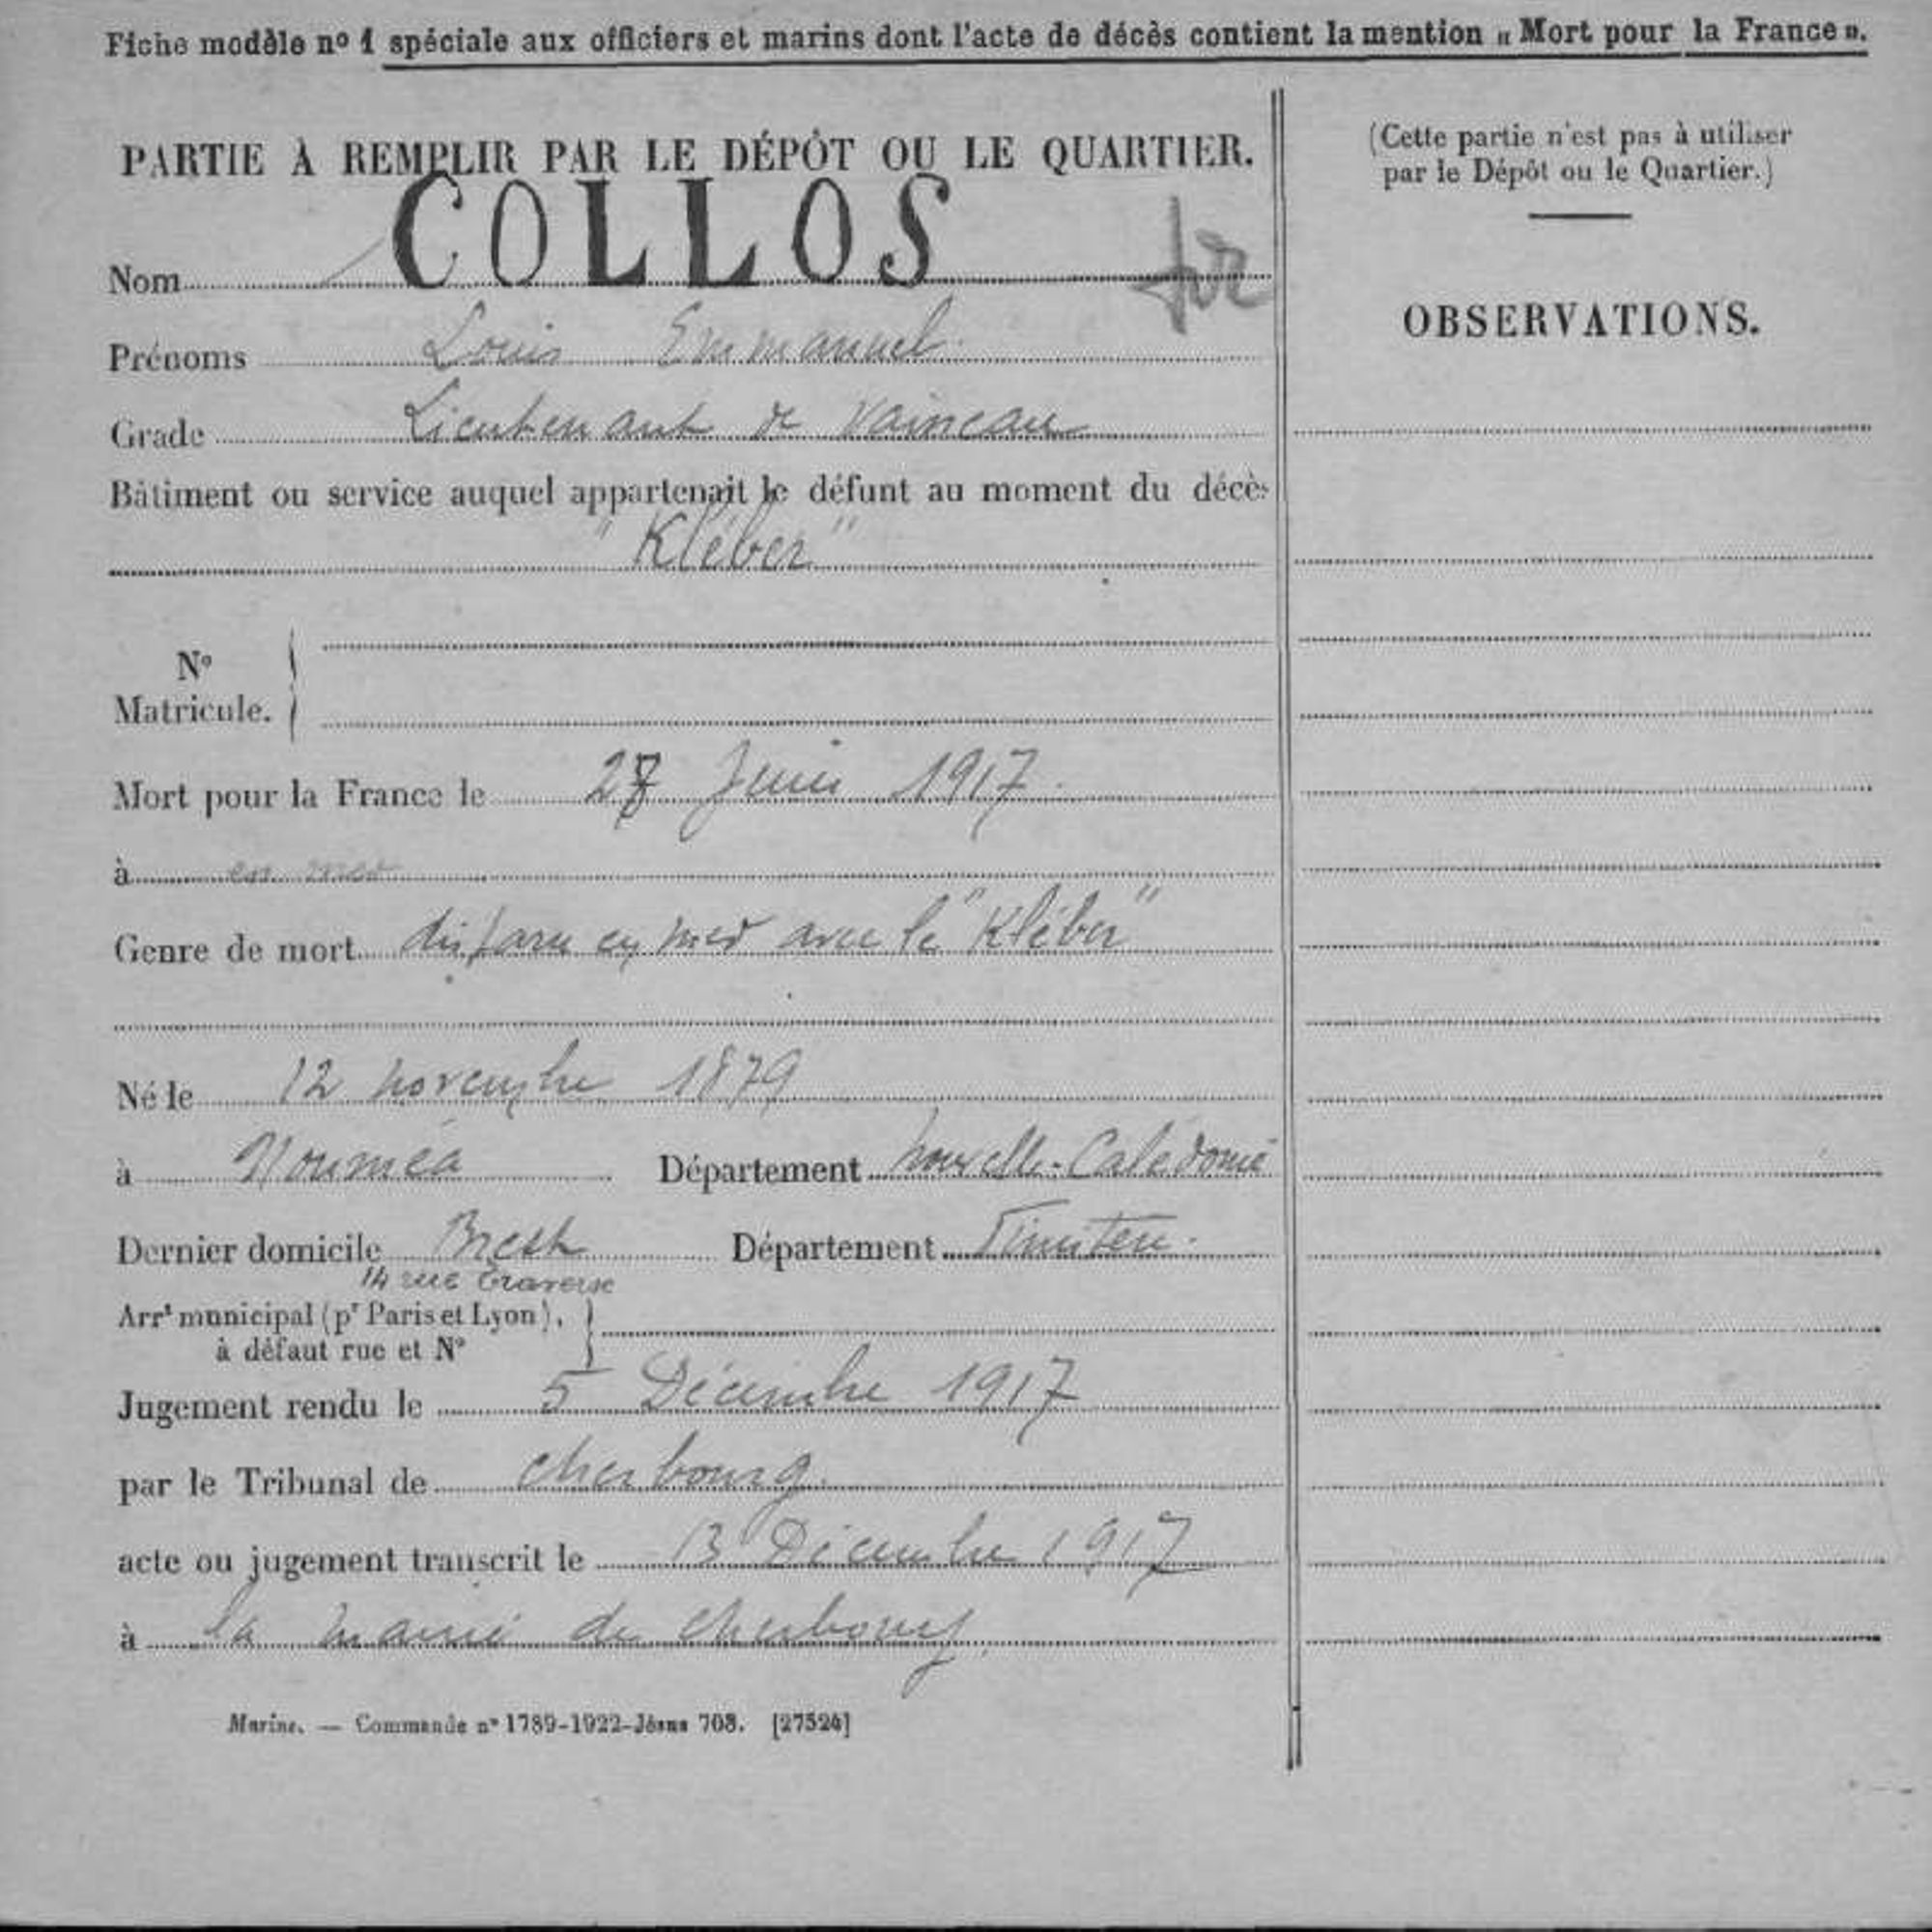 Fiche modèle nº 1 spéciale aux officiers et marins dont l'acte de décès contient la mention « Mort pour la France ».
PARTIE À REMPLIR PAR LE DÉPÔT OU LE QUARTIER.
Nom COLLOS
Prénoms Louis Emmanuel
Grade Lieutenant de Vaisseau
Bâtiment ou service auquel appartenait le défunt au moment du décès
"Kléber"
Nº
Matricule.
Mort pour la France le 27 Juin 1917
à en mer
Genre de mort disparu en mer avec le "Kléber"
Né le 12 novembre 1879
à Nouméa Département Nouvelle-Calédonie
Dernier domicile Brest Département Finistère
14 rue Traverse
Arrt municipal (pr Paris et Lyon),
à défaut rue et Nº
Jugement rendu le 5 Décembre 1917
par le Tribunal de Cherbourg
acte ou jugement transcrit le 13 Décembre 1917
à la mairie de Cherbourg
Marine. — Commande nº 1789-1922-Jésus 708. [27524]
(Cette partie n'est pas à utiliser
par le Dépôt ou le Quartier.)
OBSERVATIONS.